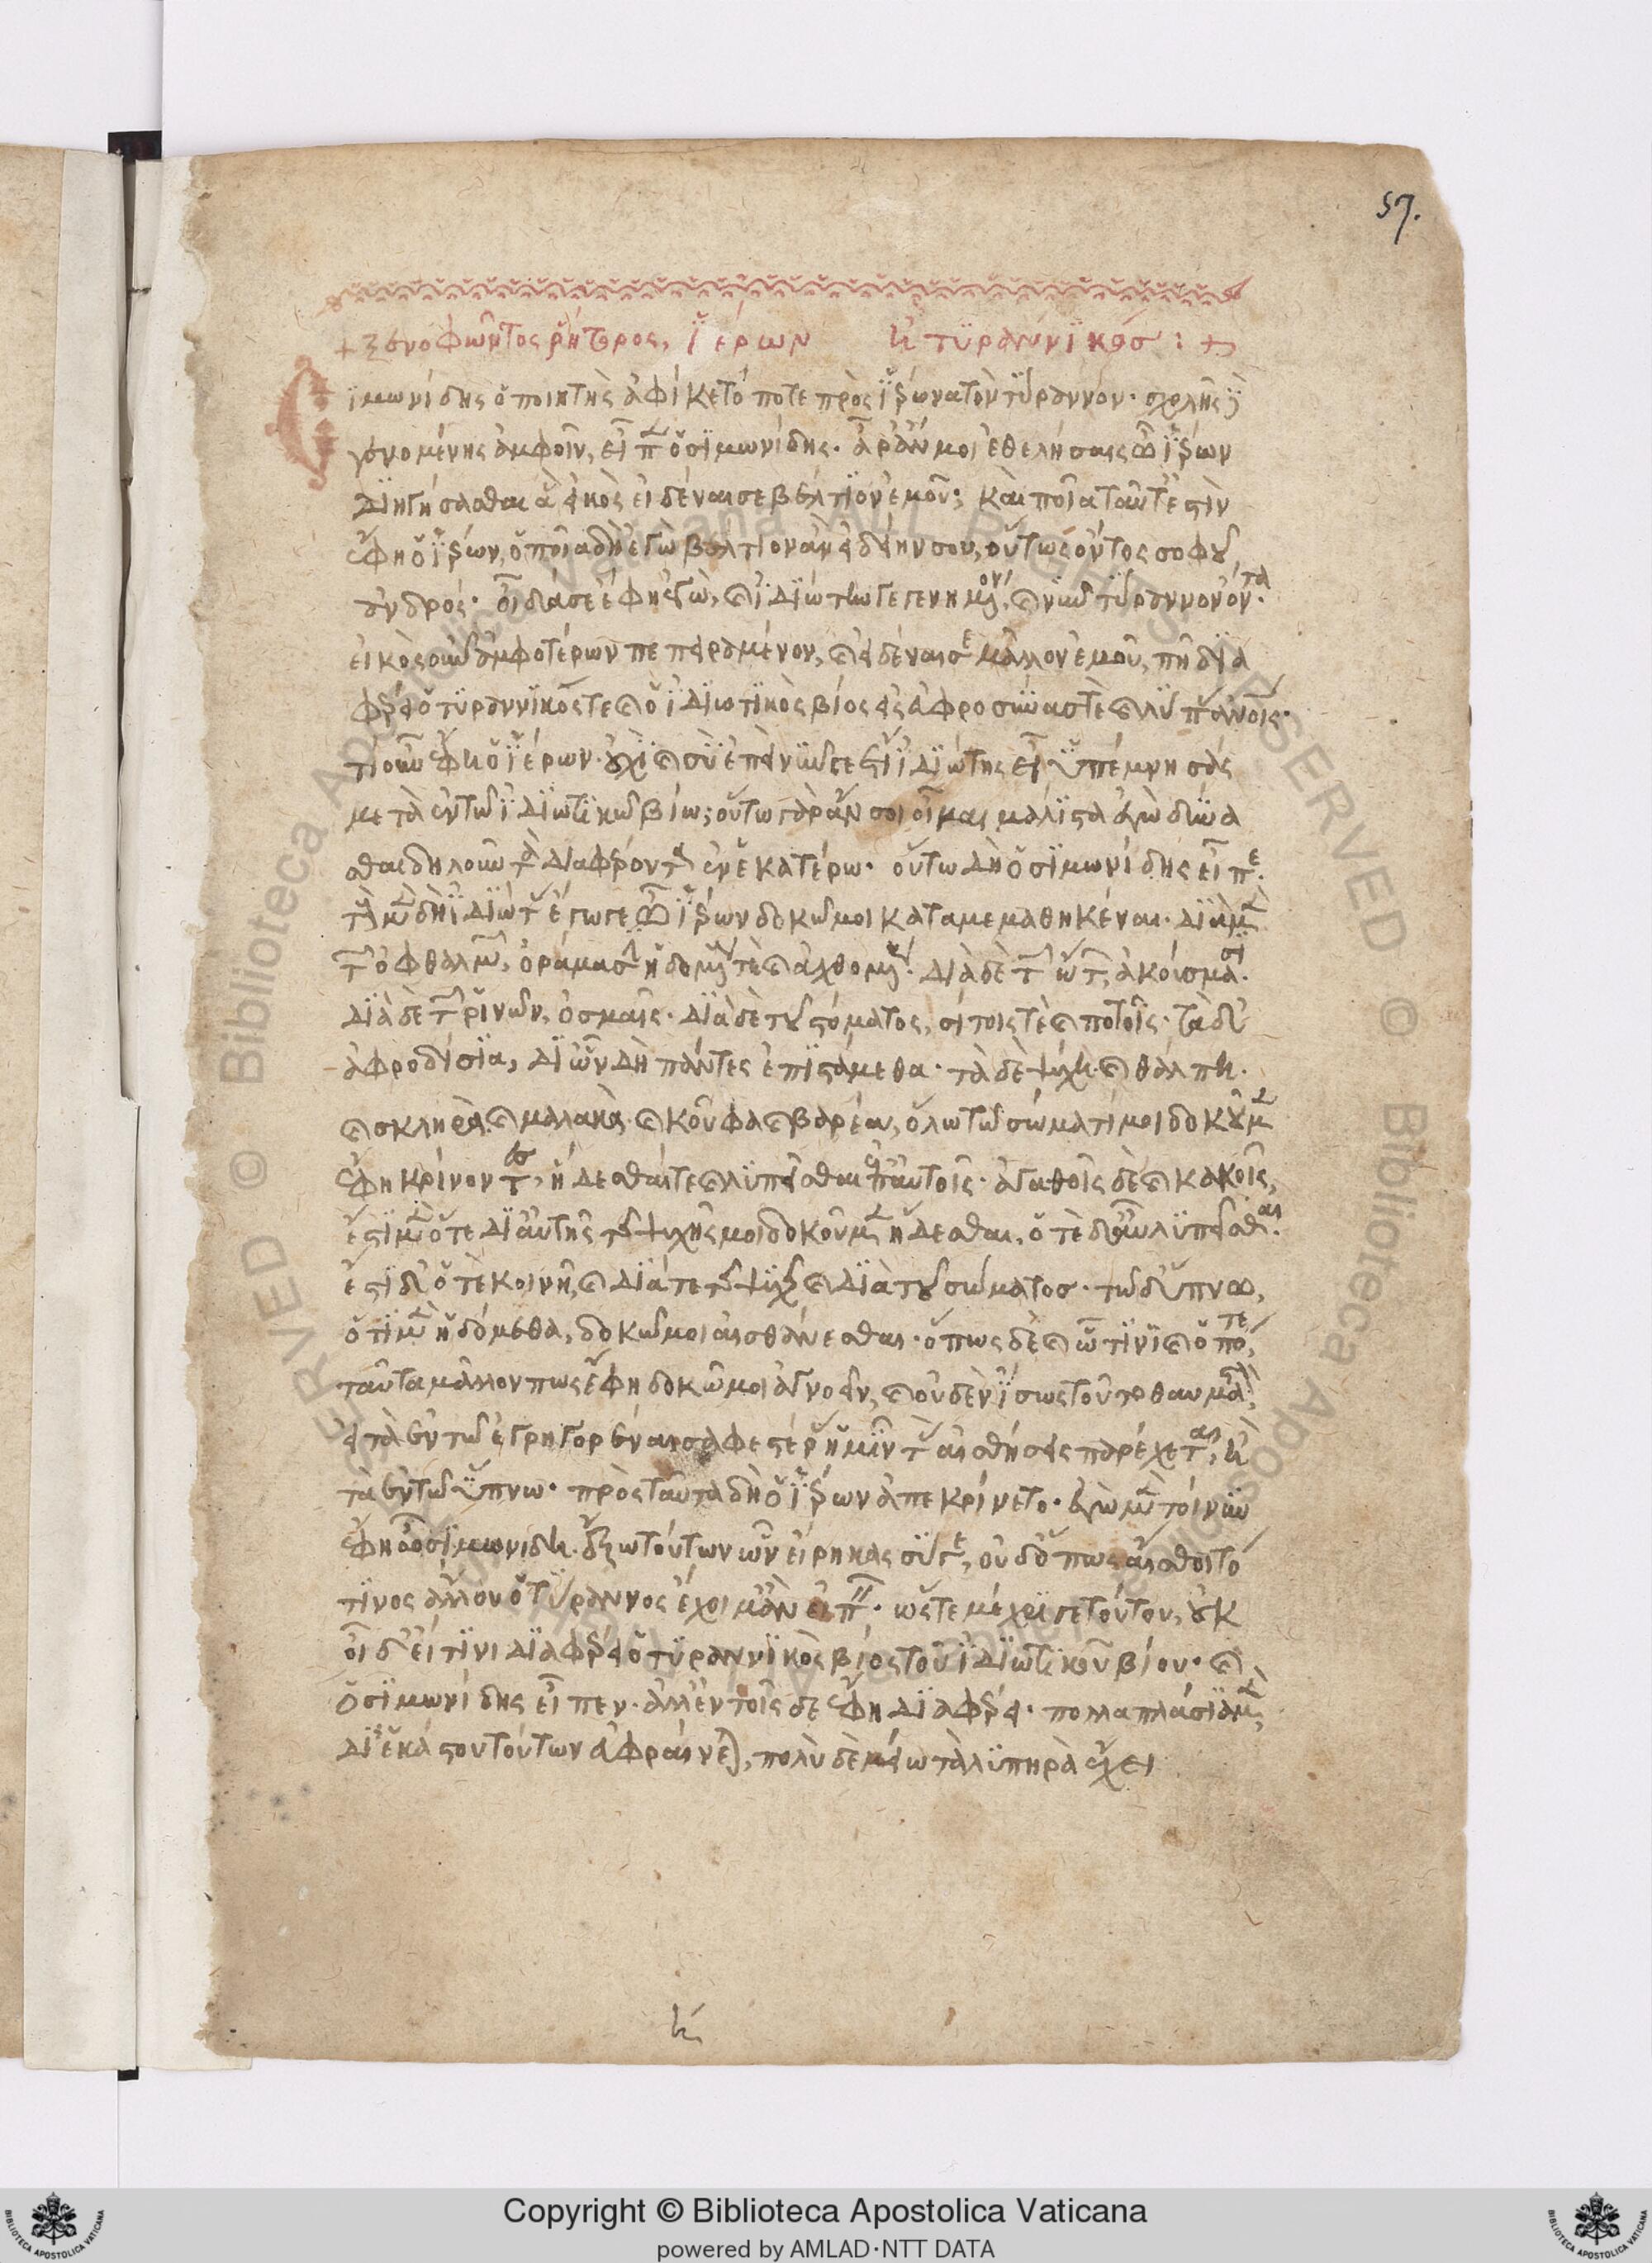 57.
+ ξενοφῶντος ῥήτορος, ἱέρων ἢ τυραννικός : +
Σιμωνίδης ὁ ποιητὴς ἀφίκετό ποτε πρὸς ἱέρωνα τὸν τύραννον· σχολῆς δὲ
γενομένης ἀμφοῖν, εἶπεν ὁ σιμωνίδης· ἆρ' ἄν μοι ἐθελήσαις ὦ ἱέρων
διηγήσασθαι ἃ εἰκὸς εἰδέναι σε βέλτιον ἐμοῦ; καὶ ποῖα ταῦτ' ἐστὶν
ἔφη ὁ ἱέρων, ὁποῖα δὴ ἐγὼ βέλτιον ἂν εἰδείην σου, οὕτως ὄντος σοφοῦ
ἀνδρός· οἶδά σε ἔφη ἐγὼ, καὶ ἰδιώτην γεγενημένον, καὶ νῦν τύραννον ὄντα·
εἰκὸς οὖν ἀμφοτέρων πεπειραμένον, καὶ εἰδέναι σε μᾶλλον ἐμοῦ, πῆ δια
φέρει ὁ τυραννικός τε καὶ ὁ ἰδιωτικὸς βίος εἰς εὐφροσύνας τὲ καὶ λύπας ἀνθρώποις·
τί οὖν ἔφη ὁ ἱέρων· οὐχὶ καὶ σὺ ἐπεὶ νῦν γε ἔτι ἰδιώτης εἶ ὑπέμνησάς
με τὰ ἐν τῷ ἰδιωτικῷ βίῳ; οὕτω γὰρ ἄν σοι οἶμαι μάλιστα ἐγὼ δύνα
σθαι δηλοῦν τὰ διαφέροντα ἐν ἑκατέρῳ· οὕτω δὴ ὁ σιμωνίδης εἶπε·
τοὺς μὲν δὴ ἰδιώτας ἔγωγε ὦ ἱέρων δοκῶ μοι καταμεμαθηκέναι· διὰ μὲν
τῶν ὀφθαλμῶν, ὁράμασιν ἡδομένους τὲ καὶ ἀχθομένους· διὰ δὲ τῶν ὤτων, ἀκούσμασι·
διὰ δὲ τῶν ῥινῶν, ὀσμαῖς· διὰ δὲ τοῦ στόματος, σίτοις τὲ καὶ ποτοῖς· τὰ δ'
ἀφροδίσια, δι' ὧν δὴ πάντες ἐπιστάμεθα· τὰ δὲ ψύχη καὶ θάλπη·
καὶ σκληρὰ καὶ μαλακὰ καὶ κοῦφα καὶ βαρέα, ὅλῳ τῷ σώματί μοι δοκοῦμεν
ἔφη κρίνοντες, ἥδεσθαί τε καὶ λυπεῖσθαι ἐπ' αὐτοῖς· ἀγαθοῖς δὲ καὶ κακοῖς,
ἔστι μὲν ὅτε δι' αὐτῆς τῆς ψυχῆς μοι δοκοῦμεν ἥδεσθαι, ὁτὲ δ' αὖ λυπεῖσθαι·
ἔστι δ' ὁτὲ κοινῆ, καὶ διά τε τῆς ψυχῆς καὶ διὰ τοῦ σώματος· τῷ δ' ὕπνῳ,
ὅτι μὲν ἡδόμεθα, δοκῶ μοι αἰσθάνεσθαι· ὅπως δὲ καὶ ᾧτινι καὶ ὁπότε,
ταῦτα μᾶλλόν πως ἔφη δοκῶ μοι ἀγνοεῖν, καὶ οὐδὲν ἴσως τοῦτο θαυμαστὸν,
εἰ τὰ ἐν τῷ ἐγρηγορέναι σαφεστέρας ἡμῖν τὰς αἰσθήσεις παρέχεται, ἢ
τὰ ἐν τῷ ὕπνῳ· πρὸς ταῦτα δὴ ὁ ἱέρων ἀπεκρίνετο· ἐγὼ μὲν τοίνυν
ἔφη ὦ σιμωνίδη· ἔξω τούτων ὧν εἴρηκας σύ γε, οὐδ' ὅπως αἴσθοιτό
τινος ἄλλου ὁ τύραννος ἔχοιμ' ἂν εἰπεῖν· ὥστε μέχρι γε τούτου, οὐκ
οἶδ' εἴ τινι διαφέρει ὁ τυραννικὸς βίος τοῦ ἰδιωτικοῦ βίου· καὶ
ὁ σιμωνίδης εἶπεν· ἀλλ' ἐν τοῖσδε ἔφη διαφέρει· πολλαπλάσια μὲν
δι' ἑκάστου τούτων εὐφραίνεται, πολὺ δὲ μείω τὰ λυπηρὰ ἔχει
Copyright © Biblioteca Apostolica Vaticana
powered by AMLAD·NTT DATA